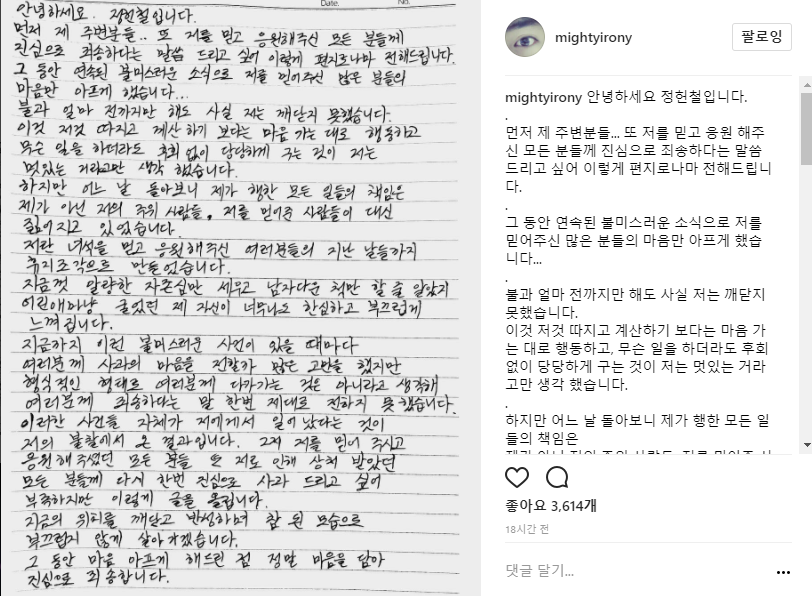 Date.
No.
안녕하세요. 정헌철입니다.
먼저 제 주변분들.. 또 저를 믿고 응원해주신 모든 분들께
진심으로 죄송하다는 말씀 드리고 싶어 이렇게 편지로나마 전해드립니다.
그 동안 연속된 불미스러운 소식으로 저를 믿어주신 많은 분들의
마음만 아프게 했습니다...
불과 얼마 전까지만 해도 사실 저는 깨닫지 못했습니다.
이것 저것 따지고 계산하기 보다는 마음 가는 대로 행동하고
무슨 일을 하더라도 후회 없이 당당하게 구는 것이 저는
멋있는 거라고만 생각 했습니다.
하지만 어느 날 돌아보니 제가 행한 모든 일들의 책임은
제가 아닌 저의 주위 사람들, 저를 믿어준 사람들이 대신
짊어지고 있었습니다.
저란 녀석을 믿고 응원해주신 여러분들의 지난 날들까지
휴지조각으로 만들었습니다.
지금껏 알량한 자존심만 세우고 남자다운 척만 할 줄 알았지
어린애마냥 굴었던 제 자신이 너무나도 한심하고 부끄럽게
느껴집니다.
지금까지 이런 불미스러운 사건이 있을 때마다
여러분께 사과의 마음을 전할까 많은 고민을 했지만
형식적인 형태로 여러분께 다가가는 것은 아니라고 생각해
여러분께 죄송하다는 말 한번 제대로 전하지 못했습니다.
이러한 사건들 자체가 저에게서 일어났다는 것이
저의 불찰에서 온 결과입니다. 그저 저를 믿어 주시고
응원해주셨던 모든 분들 또 저로 인해 상처 받았던
모든 분들께 다시 한번 진심으로 사과 드리고 싶어
부족하지만 이렇게 글을 올립니다.
지금의 위치를 깨닫고 반성하며 참 된 모습으로
부끄럽지 않게 살아가겠습니다.
그 동안 마음 아프게 해드린 점 정말 마음을 담아
진심으로 죄송합니다.
mightyirony
팔로잉
mightyirony 안녕하세요 정헌철입니다.
.
먼저 제 주변분들... 또 저를 믿고 응원 해주
신 모든 분들께 진심으로 죄송하다는 말씀
드리고 싶어 이렇게 편지로나마 전해드립니
다.
.
그 동안 연속된 불미스러운 소식으로 저를
믿어주신 많은 분들의 마음만 아프게 했습
니다...
.
불과 얼마 전까지만 해도 사실 저는 깨닫지
못했습니다.
이것 저것 따지고 계산하기 보다는 마음 가
는 대로 행동하고, 무슨 일을 하더라도 후회
없이 당당하게 구는 것이 저는 멋있는 거라
고만 생각 했습니다.
.
하지만 어느 날 돌아보니 제가 행한 모든 일
들의 책임은
좋아요 3,614개
18시간 전
댓글 달기...